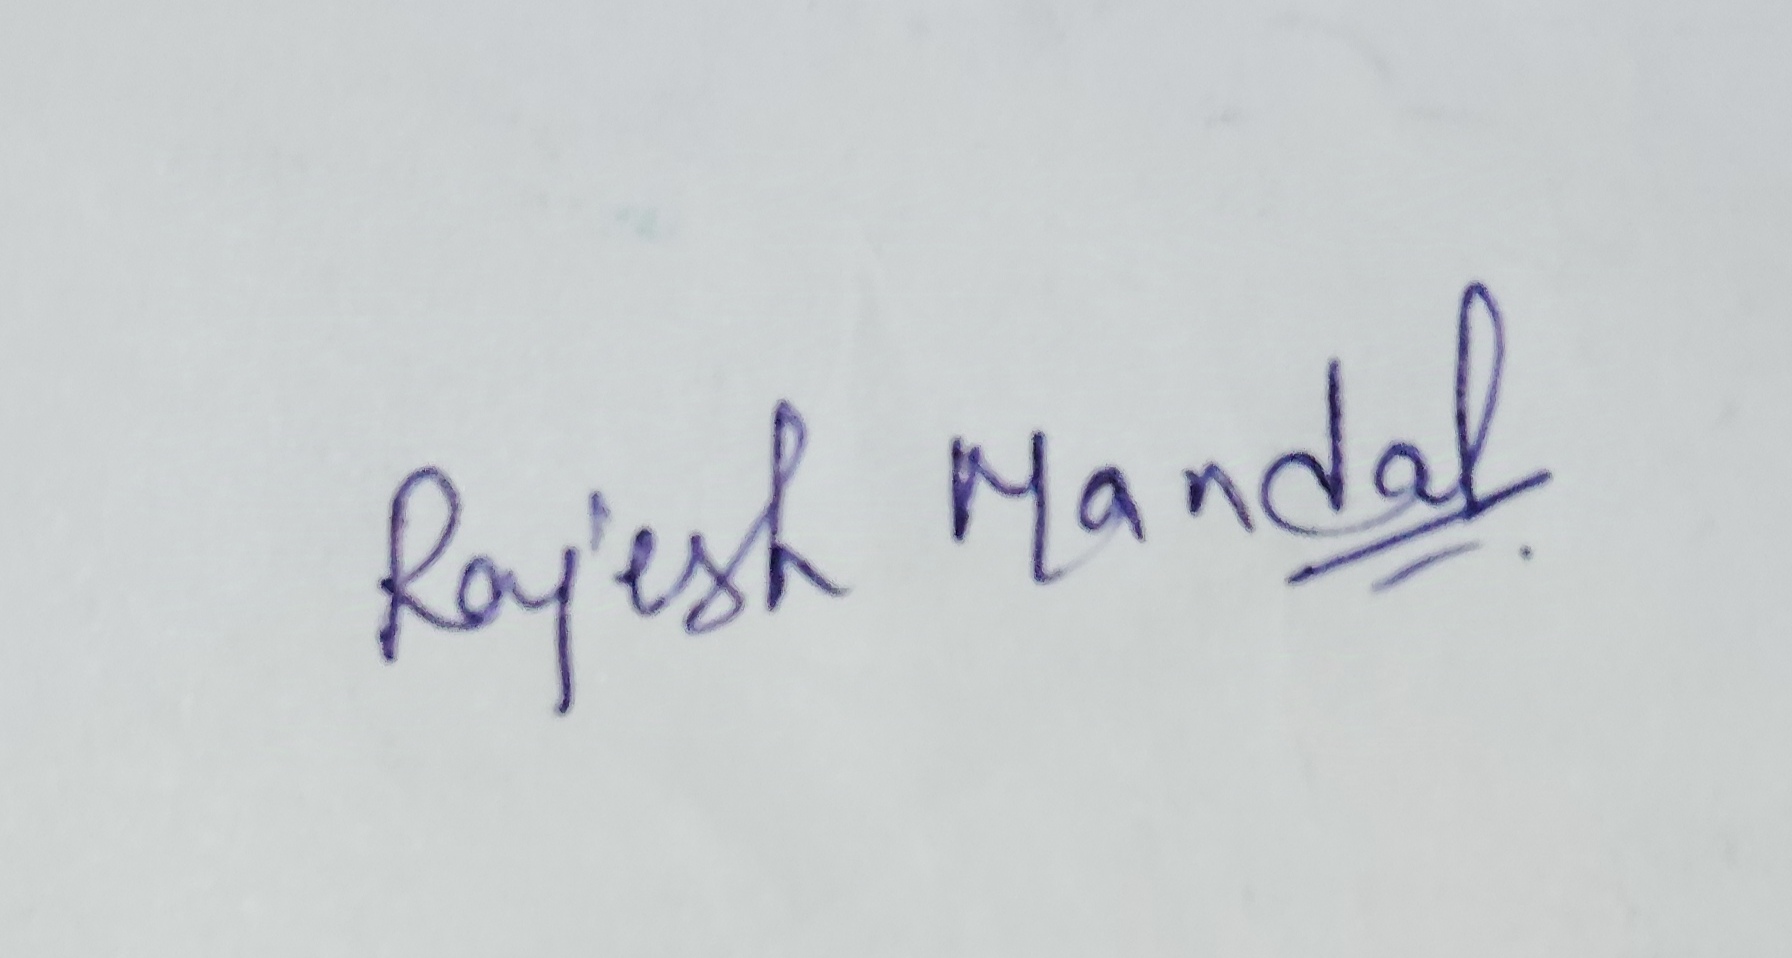 Rajesh Mandal.